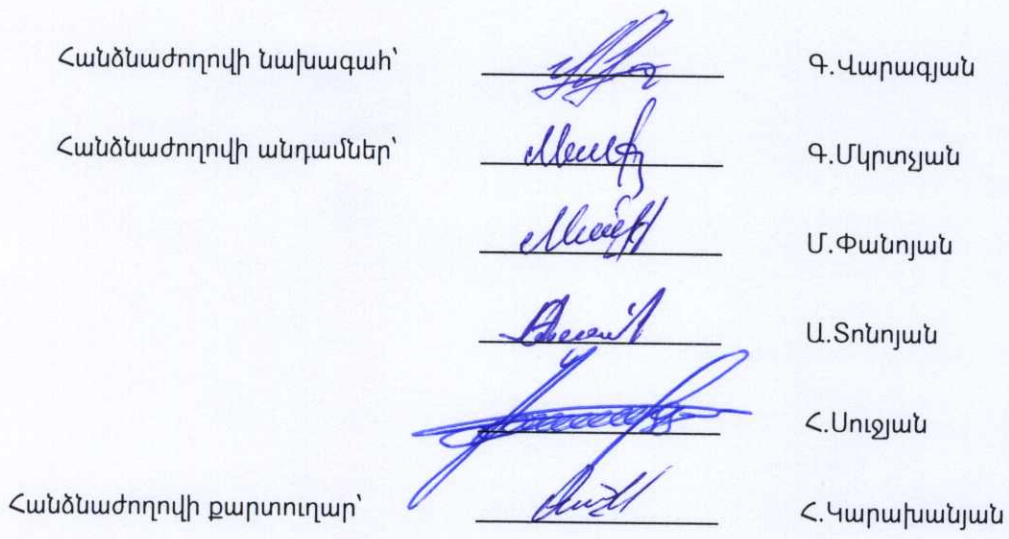 Հանձնաժողովի նախագահ՝ Գ.Վարագյան
Հանձնաժողովի անդամներ՝ Գ.Մկրտչյան
Մ.Փանոյան
Ա.Տոնոյան
Հ.Սուջյան
Հանձնաժողովի քարտուղար՝ Հ.Կարախանյան